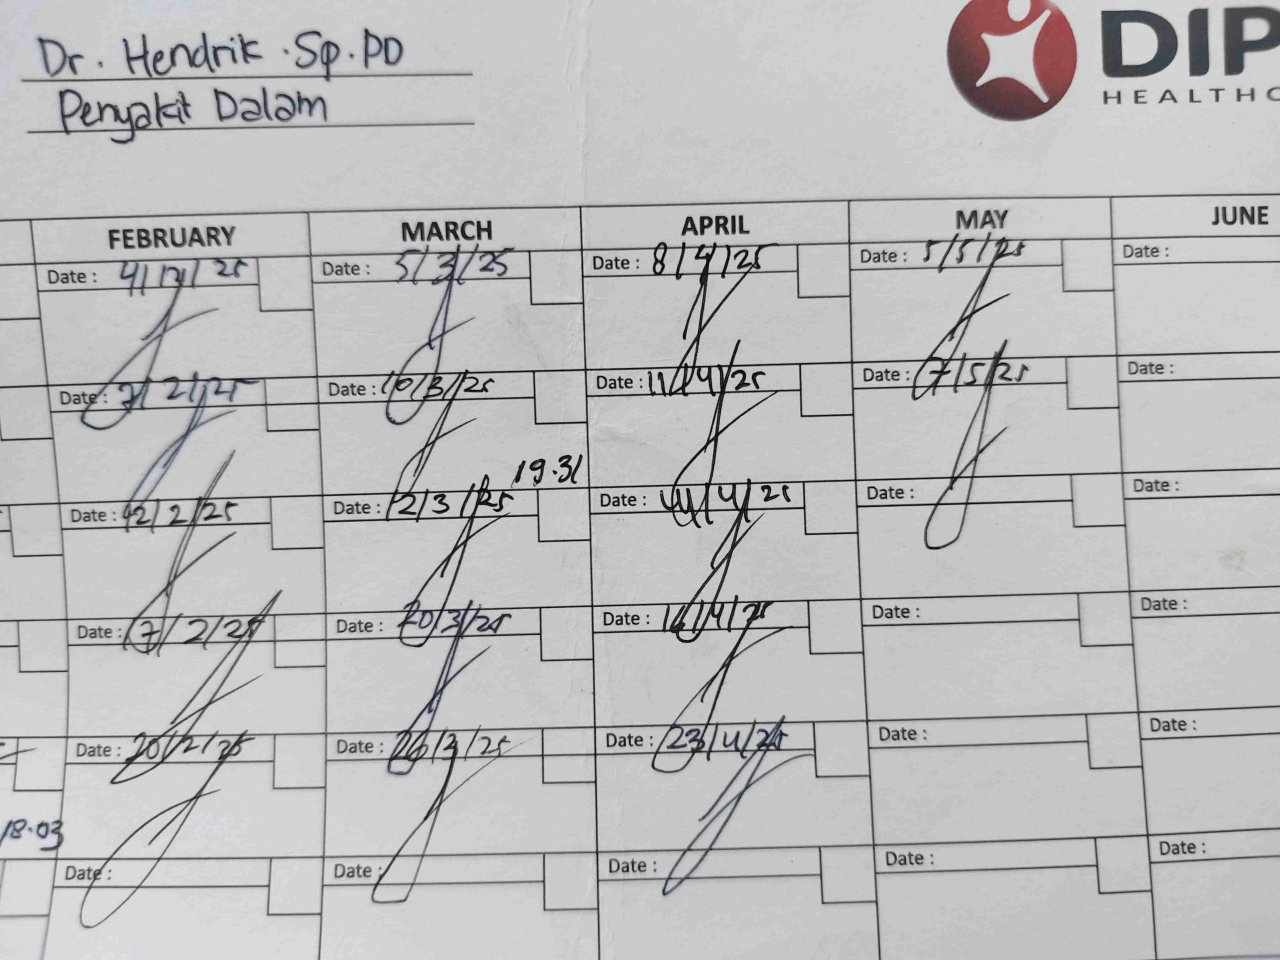 Dr. Hendrik .Sp.PD
Penyakit Dalam
DIP
HEALTHC
FEBRUARY MARCH APRIL MAY JUNE
Date : 4/2/25 Date : 5/3/25 Date : 8/4/25 Date : 5/5/25 Date :
Date : 7/2/25 Date : 10/3/25 Date : 11/4/25 Date : 7/5/25 Date :
19.31
Date : 12/2/25 Date : 12/3/25 Date : 14/4/25 Date : Date :
Date : 17/2/25 Date : 20/3/25 Date : 16/4/25 Date : Date :
Date : 20/2/25 Date : 26/3/25 Date : 23/4/25 Date : Date :
18.03
Date : Date : Date : Date : Date :